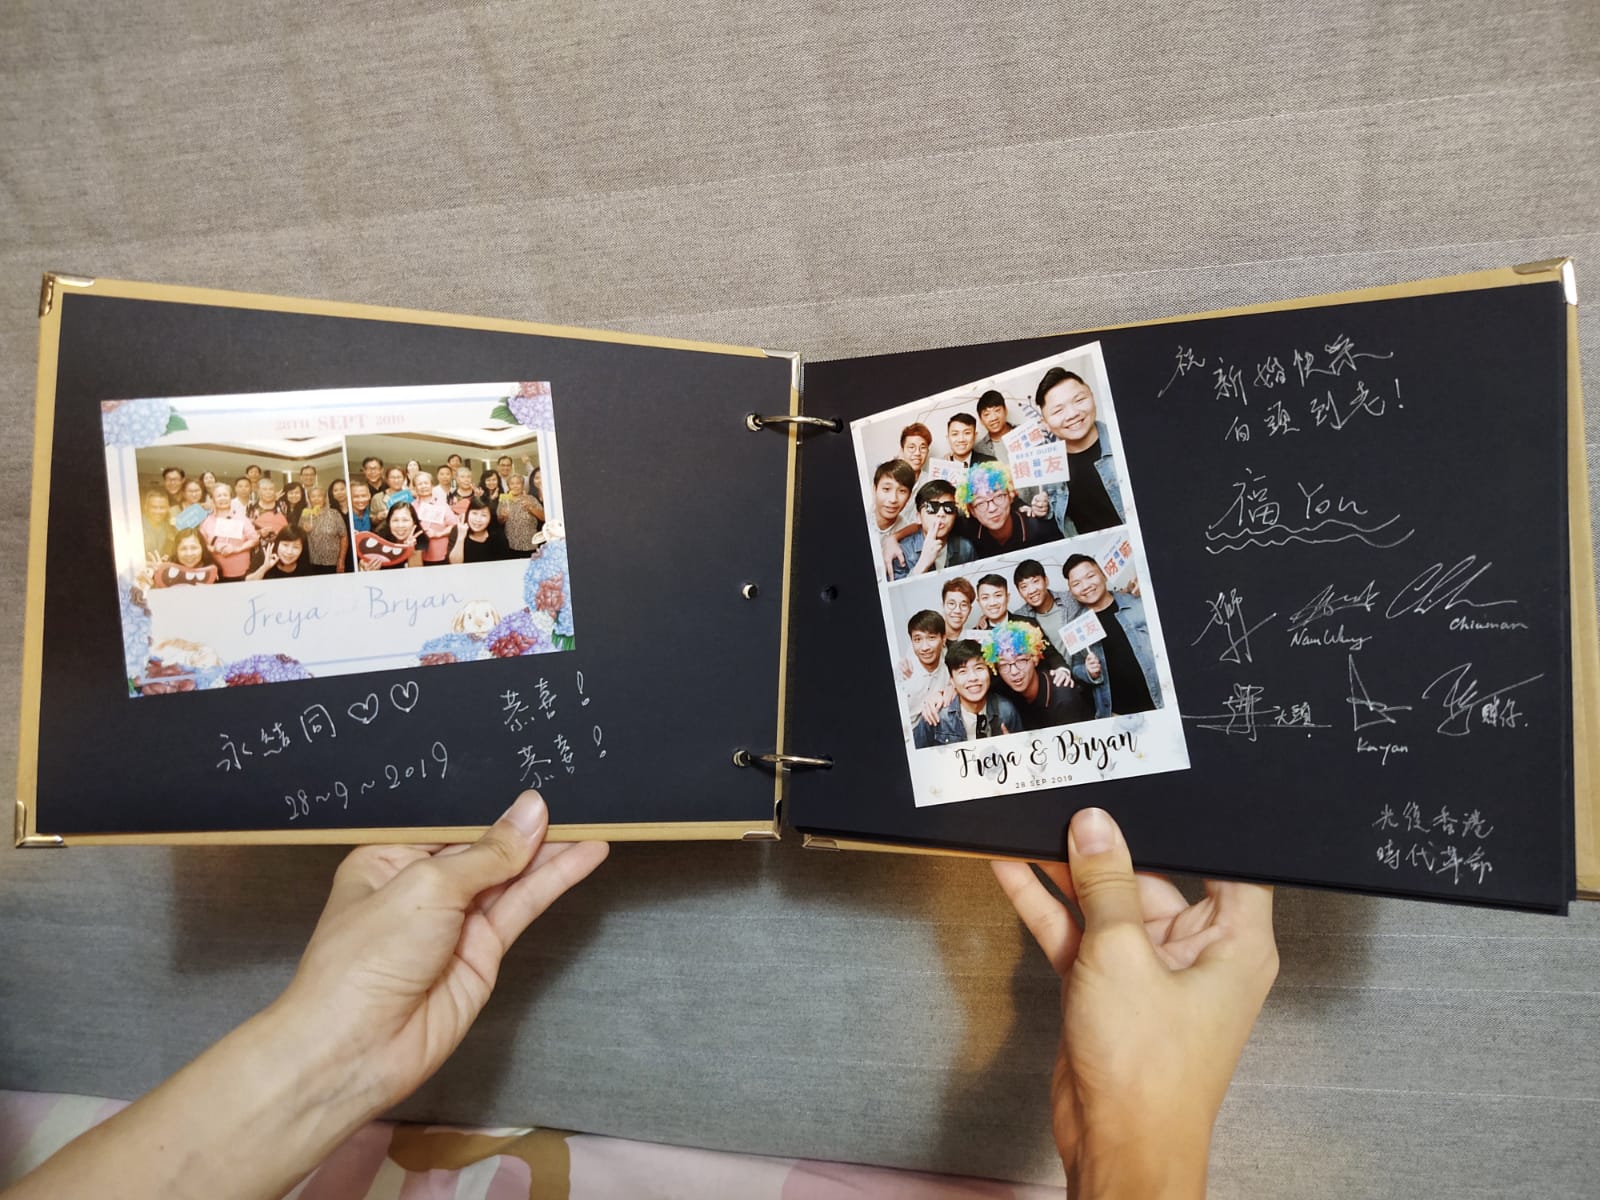 28TH SEPT 2019
Freya and Bryan
永結同♡♡
28~9~2019
恭喜!
恭喜!
BEST DUDE
損最佳友
Freya & Bryan
28 SEP 2019
祝新婚快樂
白頭到老!
福 You
Nam Wing
Chiuman
大頭
Kayan
光復香港
時代革命